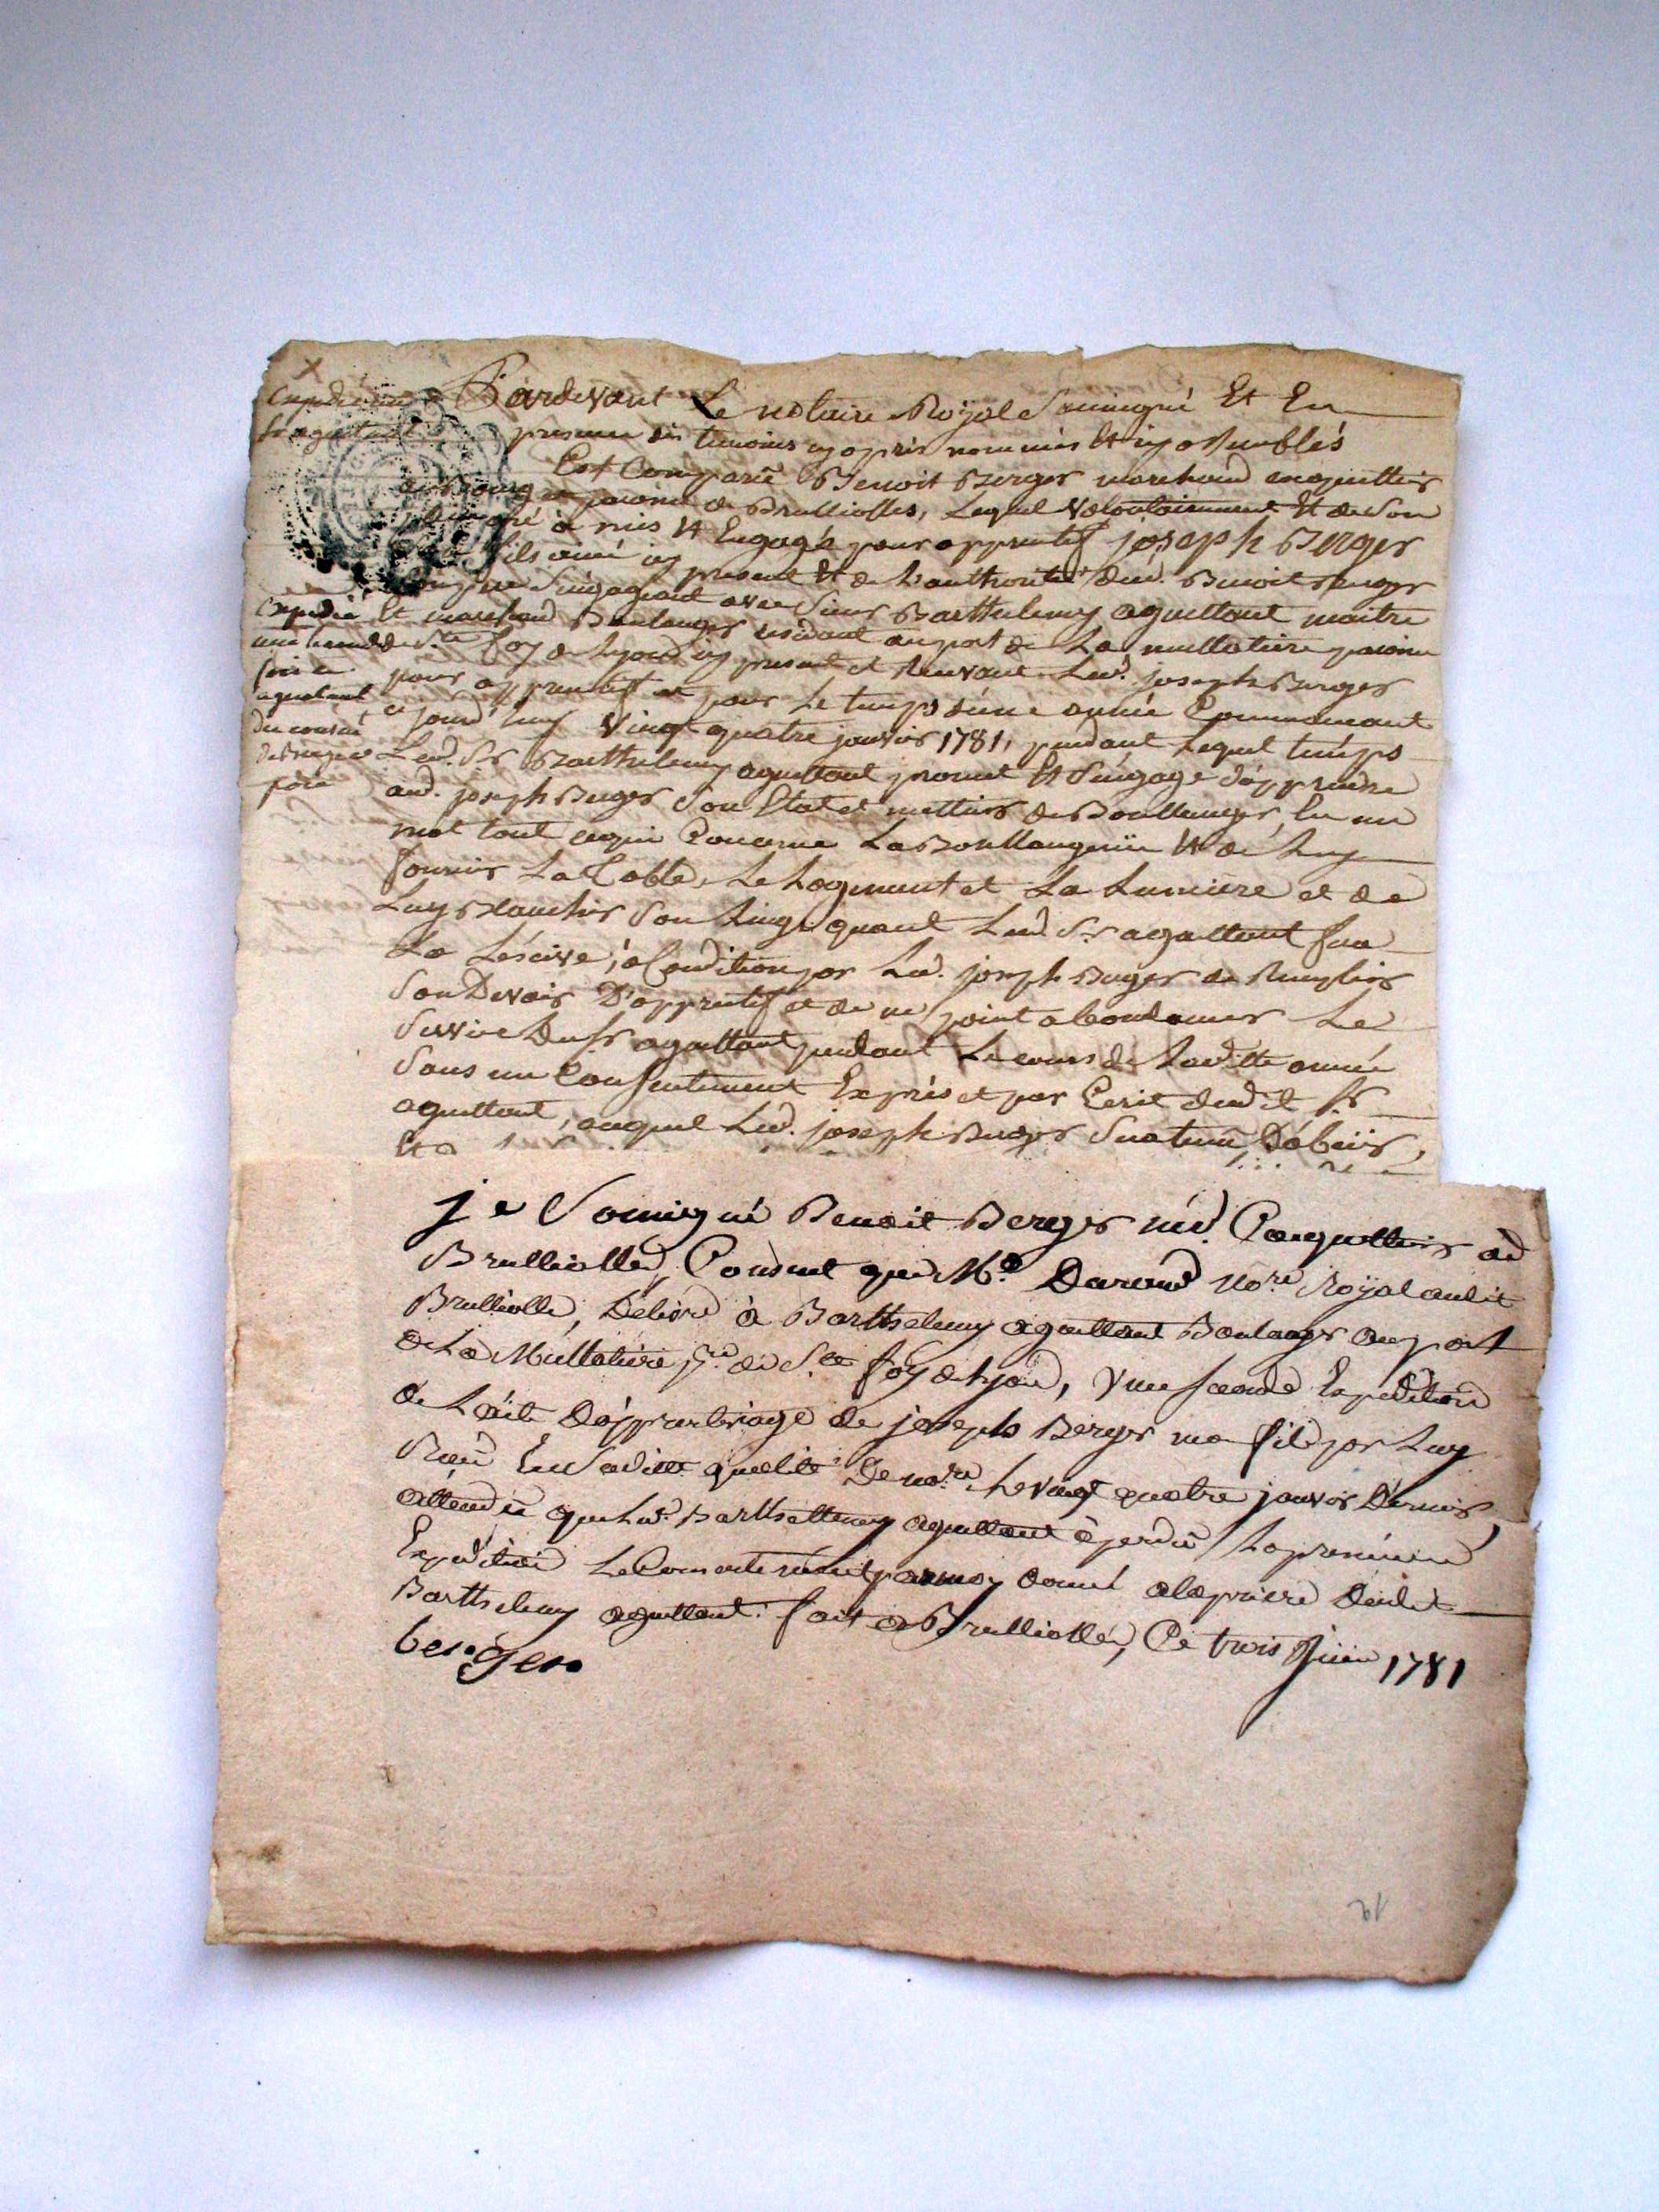 Pardevant Le notaire Royal Soussigné Et En
presence des temoins cy apris nommés Et
Est Comparu Benoit Berger marchand coquettier
au Bourg et paroisse de Brulliolles, Lequel volontairement Et de Son
gré à mis Et Engagé pour apprentif joseph Berger
fils ainé icy present Et de L'authorité dud. Benoit Berger
S'engageant avec Sieur Barthelemy aguettant maitre
Et marchand Boulanger residant au port de La mullatiere paroisse
de Ste foy de Lyon icy present et Recevant Led. joseph Berger
pour apprentif et pour Le temps d'une année Commencant
ce jourd'huy vingt quatre janvier 1781, pendant Lequel temps
Led. Sr Barthelemy aguettant promet Et S'engage d'apprendre
aud. joseph Berger Son Etat et mettier de Boullanger, En un
mot tout cequi Concerne La Boullangerie Et de Luy
fournir La Table, Le Logement et La Lumiere et de
Luy Blanchir Son Linge quant Led. Sr aguettant fera
La Léscive, à Condition par Led. joseph Berger de Remplir
Son Devoir D'apprentif et de ne point abandonner Le
Service du Sr aguettant pendant Le cours de Laditte année
Sans un Consentement Exprés et par Ecrit dudit Sr
aguettant, auquel Led. joseph Berger Sera tenu D'obeïir,
Expedié
une seconde
fois a
aguettant
du consent
de Berger
pere
je Soussigné Benoit Berger md. Coquettier a
Brulliolles, Consent que Me Durand nore Royal audit
Brulliolle, Délivre à Barthelemy aguettant Boulanger au port
de La Mullatiére pse de Ste foy de Lyon, une seconde Expedition
de L'acte D'apprentissage de joseph Berger mon fils par Luy
Recu En Saditte qualité De nore Le vingt quatre janvier Dernier,
attendu que Led. Barthellemy aguettant à perdu La premiere
Expedition Le Consentement par moy donné a la priere dudit
Barthelemy aguettant. fait a Brulliolles, Ce trois Juin 1781
berger